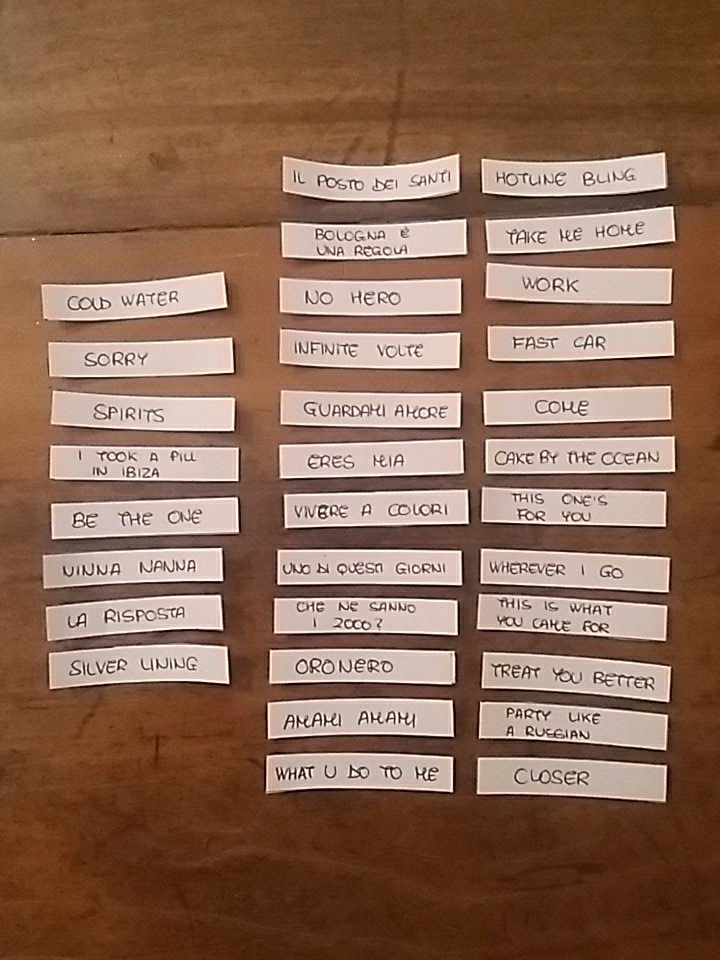 COLD WATER
SORRY
SPIRITS
I TOOK A PILL
IN IBIZA
BE THE ONE
NINNA NANNA
LA RISPOSTA
SILVER LINING
IL POSTO DEI SANTI
BOLOGNA È
UNA REGOLA
NO HERO
INFINITE VOLTE
GUARDAMI AMORE
ERES MIA
VIVERE A COLORI
UNO DI QUESTI GIORNI
CHE NE SANNO
I 2000?
ORONERO
AMAMI AMAMI
WHAT U DO TO ME
HOTLINE BLING
TAKE ME HOME
WORK
FAST CAR
COME
CAKE BY THE OCEAN
THIS ONE'S
FOR YOU
WHEREVER I GO
THIS IS WHAT
YOU CAME FOR
TREAT YOU BETTER
PARTY LIKE
A RUSSIAN
CLOSER